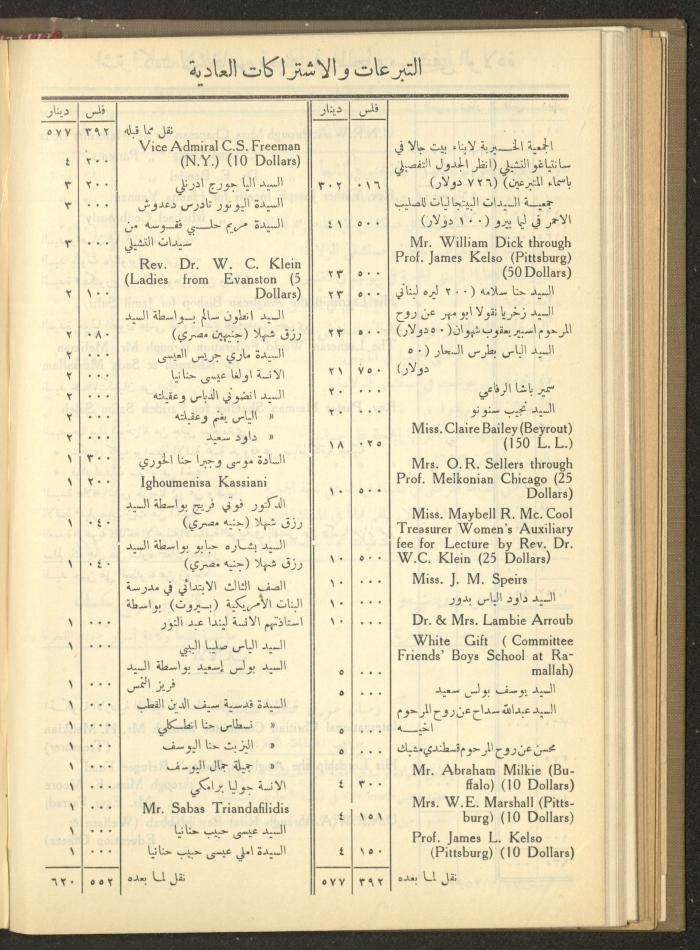 التبرعات والاشتراكات العادية
فلس دينار
الجمعية الخيرية لابناء بيت جالا في
سانتياغو التشيلي (انظر الجدول التفصيلي
باسماء المتبرعين) (٧٢٦ دولار) ٠١٦ ٣٠٢
جمعية السيدات البيتجاليات للصليب
الاحمر في ليما بيرو (١٠٠ دولار) ٥٠٠ ٤١
Mr. William Dick through
Prof. James Kelso (Pittsburg)
(50 Dollars) ٥٠٠ ٢٣
السيد حنا سلامه (٢٠٠ ليره لبناني ٥٠٠ ٢٣
السيد زخريا نقولا ابو مهر عن روح
المرحوم اسبير يعقوب شهوان (٥٠ دولار) ٥٠٠ ٢٣
السيد الياس بطرس السحار (٥٠
دولار) ٧٥٠ ٢١
سمير باشا الرفاعي ٠٠٠ ٢٠
السيد نجيب سنونو ٠٠٠ ٢٠
Miss. Claire Bailey (Beyrout)
(150 L. L.) ٠٢٥ ١٨
Mrs. O. R. Sellers through
Prof. Melkonian Chicago (25
Dollars) ٥٠٠ ١٠
Miss. Maybell R. Mc. Cool
Treasurer Women's Auxiliary
fee for Lecture by Rev. Dr.
W.C. Klein (25 Dollars) ٥٠٠ ١٠
Miss. J. M. Speirs ٠٠٠ ١٠
السيد داود الياس بدور ٠٠٠ ١٠
Dr. & Mrs. Lambie Arroub ٠٠٠ ١٠
White Gift (Committee
Friends' Boys School at Ra-
mallah) ٠٠٠ ٥
السيد يوسف بولس سعيد ٠٠٠ ٥
السيد عبدالله سداح عن روح المرحوم
اخيه ٠٠٠ ٥
محسن عن روح المرحوم قسطندي مشبك ٠٠٠ ٥
Mr. Abraham Milkie (Bu-
ffalo) (10 Dollars) ٣٠٠ ٤
Mrs. W.E. Marshall (Pitts-
burg) (10 Dollars) ١٥١ ٤
Prof. James L. Kelso
(Pittsburg) (10 Dollars) ١٥٠ ٤
نقل لما بعده ٣٩٢ ٥٧٧
فلس دينار
نقل مما قبله ٣٩٢ ٥٧٧
Vice Admiral C.S. Freeman
(N.Y.) (10 Dollars) ٢٠٠ ٤
السيد اليا جورج ادرنلي ٢٠٠ ٣
السيدة اليونور تادرس دعدوش ٠٠٠ ٣
السيدة مريم حلبي قفوسه من
سيدات التشيلي ٠٠٠ ٣
Rev. Dr. W. C. Klein
(Ladies from Evanston (5
Dollars) ١٠٠ ٢
السيد انطون سالم بواسطة السيد
رزق شهلا (جنيهين مصري) ٠٨٠ ٢
السيدة ماري جريس العيسى ٠٠٠ ٢
الانسة اولغا عيسى حنانيا ٠٠٠ ٢
السيد انضوني الدباس وعقيلته ٠٠٠ ٢
« الياس يغنم وعقيلته ٠٠٠ ٢
« داود سعيد ٠٠٠ ٢
السادة موسى وجبرا حنا الخوري ٣٠٠ ١
Ighoumenisa Kassiani ٢٠٠ ١
الدكتور فوتي فريج بواسطة السيد
رزق شهلا (جنيه مصري) ٠٤٠ ١
السيد بشاره حبابو بواسطة السيد
رزق شهلا (جنيه مصري) ٠٤٠ ١
الصف الثالث الابتدائي في مدرسة
البنات الأمريكية (بيروت) بواسطة
استاذتهم الانسة ليندا عبد النور ٠٠٠ ١
السيد الياس صليبا البيبي ٠٠٠ ١
السيد بولس إسعيد بواسطة السيد
فريز النمس ٠٠٠ ١
السيدة قدسية سيف الدين القطب ٠٠٠ ١
« نسطاس حنا انطكلي ٠٠٠ ١
« اليزبث حنا اليوسف ٠٠٠ ١
« جميلة جمال اليوسف ٠٠٠ ١
الانسة جوليا برامكي ٠٠٠ ١
Mr. Sabas Triandafilidis ٠٠٠ ١
السيد عيسى حبيب حنانيا ٠٠٠ ١
السيدة املي عيسى حبيب حنانيا ٠٠٠ ١
نقل لما بعده ٥٥٢ ٦٢٠